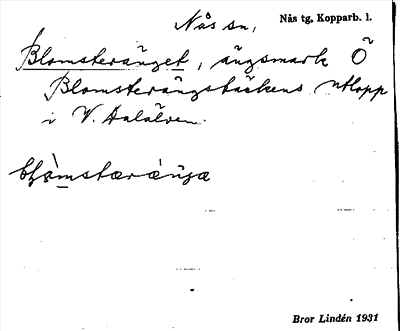 Nås sn,
Nås tg, Kopparb. l.
Blomsteränget, ängsmark Ö
Blomsterängsbäckens utlopp
i V. Dalälven.
Bror Lindén 1931